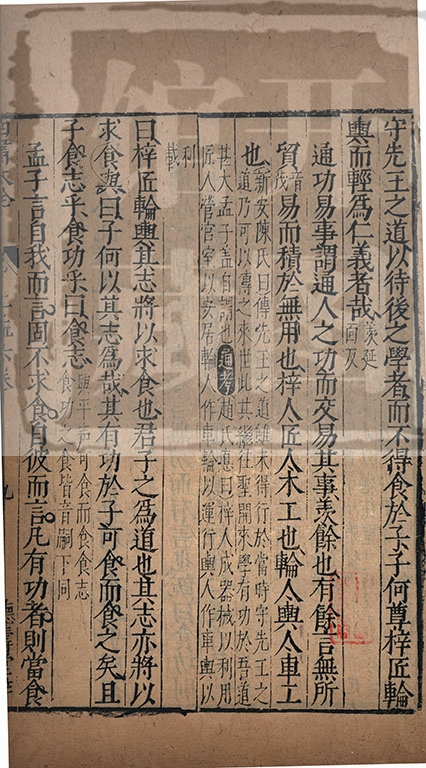 守先王之道以待後之學者而不得食於子子何尊梓匠輪
輿而輕為仁義者哉羨延面反
通功易事謂通人之功而交易其事羨餘也有餘言無所
貿音茂易而積於無用也梓人匠人木工也輪人輿人車工
也新安陳氏曰傳先王之道雖未得行於當時守先王之
道乃可以傳之來世此其繼往聖開來學有功於吾道
甚大孟子蓋自謂也通考趙氏悳曰梓人成器械以利用
匠人營宮室以安居輪人作車輪以運行輿人作車輿以
利載
曰梓匠輪輿其志將以求食也君子之為道也其志亦將以
求食與曰子何以其志為哉其有功於子可食而食之矣且
子食志乎食功乎曰食志與平聲可食而食食志食功之食皆音嗣下同
孟子言自我而言固不求食自彼而言凡有功者則當食